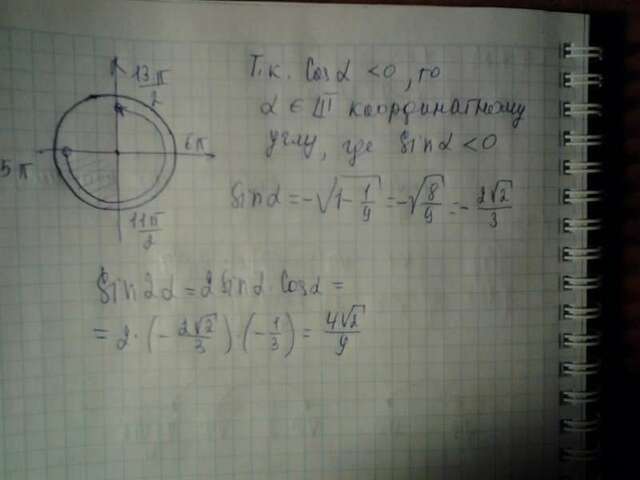 13π/2
6π
5π
11π/2
Т.к. Cosα < 0, то
α ∈ III координатному
углу, где Sinα < 0
Sinα = -√(1 - 1/9) = -√(8/9) = - 2√2/3
Sin2α = 2Sinα · Cosα =
= 2 · (- 2√2/3) · (- 1/3) = 4√2/9